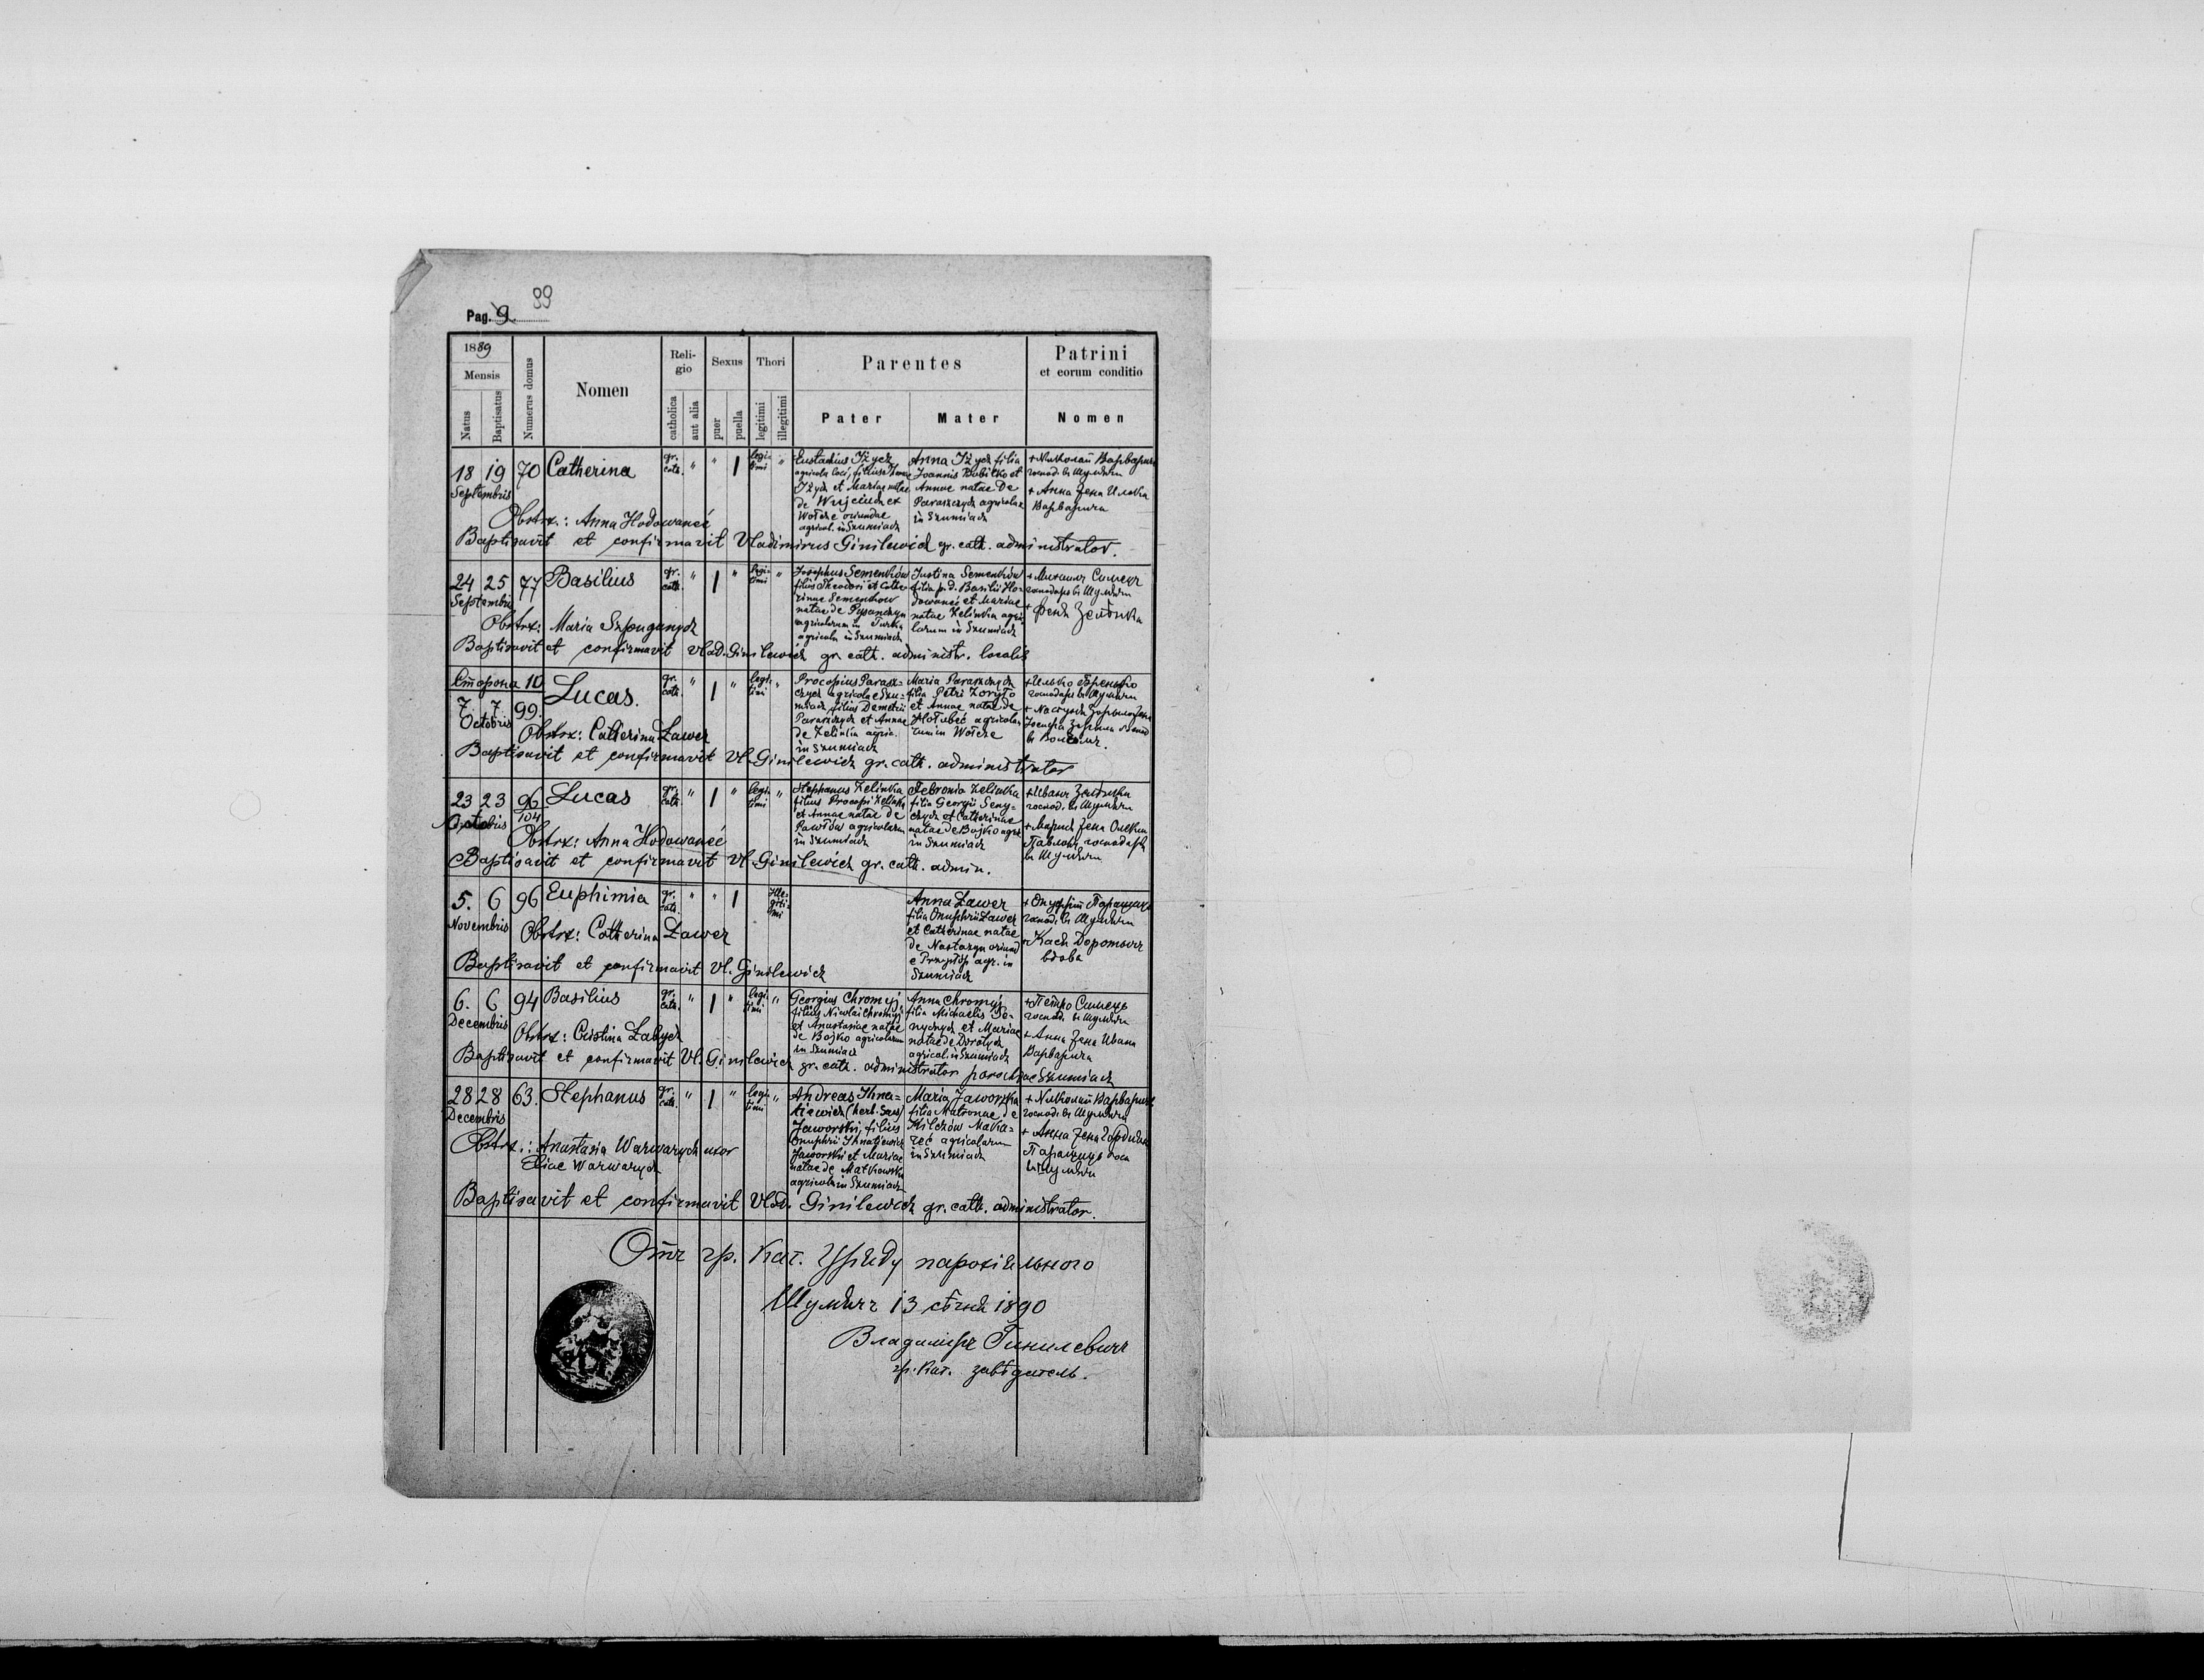 99
Pag. 9.
1889
Mensis
Natus
Baptisatus
Numerus domus
Nomen
Reli-
gio
catholica
aut alia
Sexus
puer
puella
Thori
legitimi
illegitimi
Parentes
Pater
Mater
Patrini
et eorum conditio
Nomen
18 19 70 Catherina gr. cath. " " 1 legitimi "
Septembris
Eustachius Iżycz
Iżycz et Mariae natae
agricol. in Szumiacz
Anna Iżycz filia
Joannis Kubitko et
Annae natae de
Paraszczycz agricolae
in Szumiacz
+ Николай Варварич
господ. въ Шумячи
+ Анна жена Илька
Варварича
Obstrx.: Anna Hodowaneć
Baptisavit et confirmavit Vladimirus Ginilewicz gr. cath. administrator.
24 25 77 Basilius gr. cath. " 1 " legitimi "
Septembris
Josephus Semenków
filius Theodori et Cathe-
rinae Semenków
natae de Pysanczyn
agricolarum in Turka
agricola in Szumiacz
Justina Semenków
filia p. d. Basilii Ho-
dowaneć et Mariae
natae Zelinka agrico-
larum in Szumiacz
+ Михаилъ Симецъ
господарь въ Шумячи
+ Феня Зелѣнка
Obstrx: Maria Szpuganycz
Baptisavit et confirmavit Vlad. Ginilewicz gr. cath. administr. localis
Сторона 10
7. 7. 99. Lucas. gr. cath. " 1 " legitimi "
Octobris
Procopius Parasz-
czycz agricola e Szu-
miacz filius Demetrii
Paraszczycz et Annae
de Zelinka agric.
in Szumiacz
Maria Paraszczycz
filia Petri Zoryło
et Annae natae de
Hołubeć agricola-
rum in Wołcze
+ Илько Гренько
господарь въ Шумячи
Obstrx: Catherina Ławer
Baptisavit et confirmavit Vl. Ginilewicz gr. cath. administrator
23 23 96/104 Lucas gr. cath. " 1 " legitimi "
Octobris
Stephanus Zelinka
filius Procopi Zelinka
et Annae natae de
Pawłów agricolarum
in Szumiacz
Febronia Zelinka
filia Georgii Seny-
czycz et Catherinae
natae de Bojko agr.
in Szumiacz
+ Иванъ Зелѣнка
господ. въ Шумячи
+ Марія жена Олекси
Павлова господарь
въ Шумячи
Obstrx: Anna Hodowaneć
Baptisavit et confirmavit Vl. Ginilewicz gr. cath. admin.
5. 6 96 Euphimia gr. cath. " " 1 Illegitimi
Novembris
Anna Ławer
filia Onuphrii Ławer
et Catherinae natae
agr. in
Szumiacz
+ Онуфрій Паращичъ
господ. въ Шумячи
+ Кася Доротычъ
вдова
Obstrx: Catherina Ławer
Baptisavit et confirmavit Vl. Ginilewicz
6. 6 94 Basilius gr. cath. " 1 " legitimi "
Decembris
Georgius Chromyj,
filius Nicolai Chromyj
et Anastasiae natae
de Bojko agricolarum
in Szumiacz
Anna Chromyj
filia Michaelis De-
nyczycz et Mariae
natae de Dorotycz
agricol. in Szumiacz
+ Петро Симець
господ. въ Шумячи
+ Анна жена Ивана
Варварича
Obstrx: Cristina Łabycz
Baptisavit et confirmavit Vl. Ginilewicz gr. cath. administrator parochiae Szumiacz
28 28 63. Stephanus gr. cath. " 1 " legitimi "
Decembris
Andreas Ihna-
tiewicz (herb. Sas)
Jaworski, filius
Onuphrii Ihnatiewicz
Jaworski et Mariae
natae de Matkowska
agricola in Szumiacz
Maria Jaworska
filia Matronae de
agricolarum
in Szumiacz
+ Николай Варваричъ
господ. въ Шумячи
+ Анна жена
въ Шумячи
Obstrx.: Anastasia Warwarycz uxor
Eliae Warwarycz
Baptisavit et confirmavit Vlad. Ginilewicz gr. cath. administrator.
Отъ гр. кат. уряду парохіяльного
Шумячъ 13 сѣчня 1890
Владиміръ Гинилевичъ
гр. кат. завѣдатель.